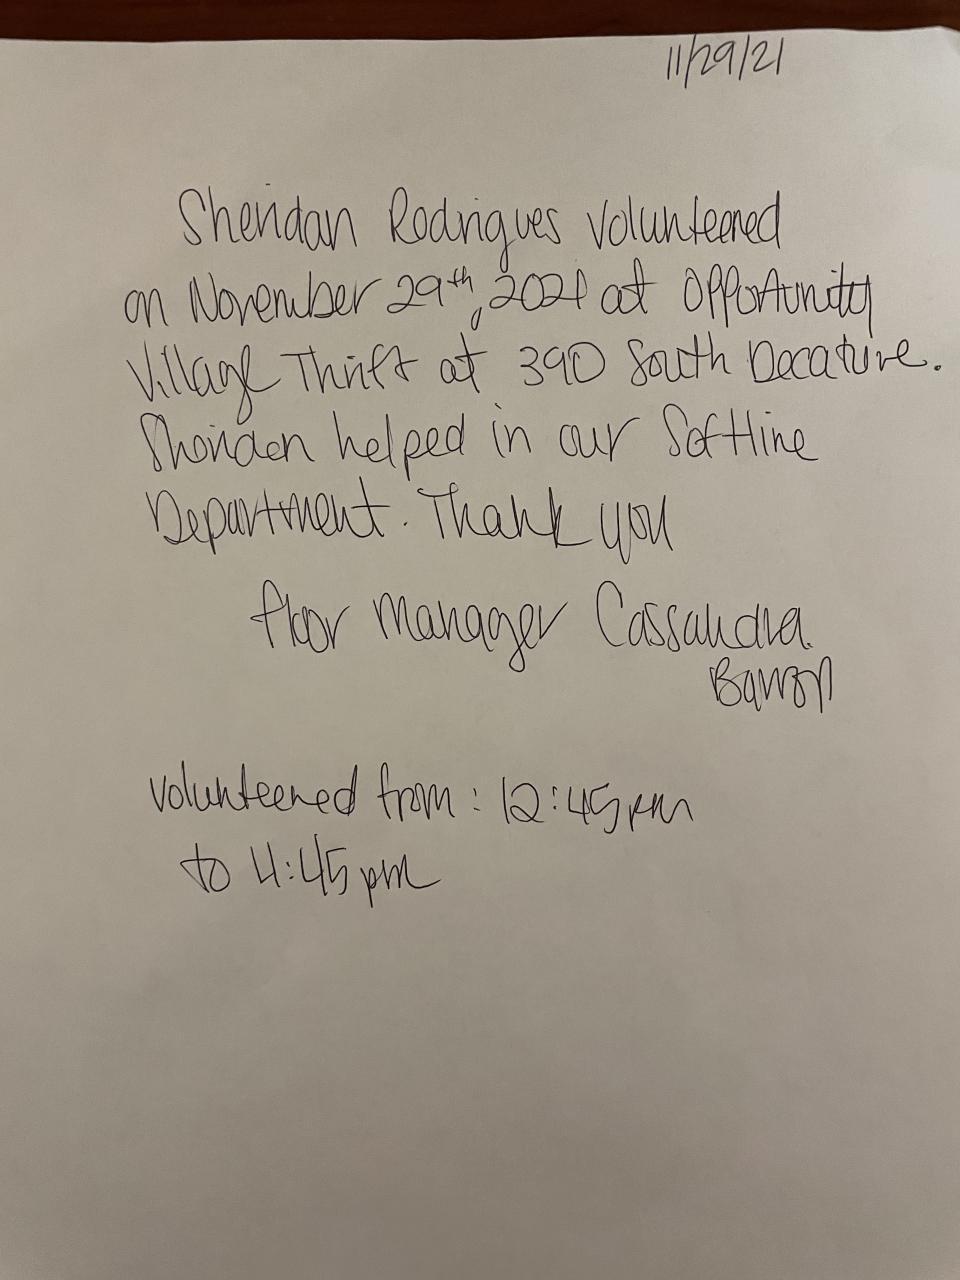 11/29/21
Sheridan Rodrigues volunteered
on November 29th, 2021 at Opportunity
Village Thrift at 390 South Decature.
Sheridan helped in our Softline
Department. Thank you
floor Manager Cassandra
Barron
volunteered from: 12:45pm
to 4:45pm